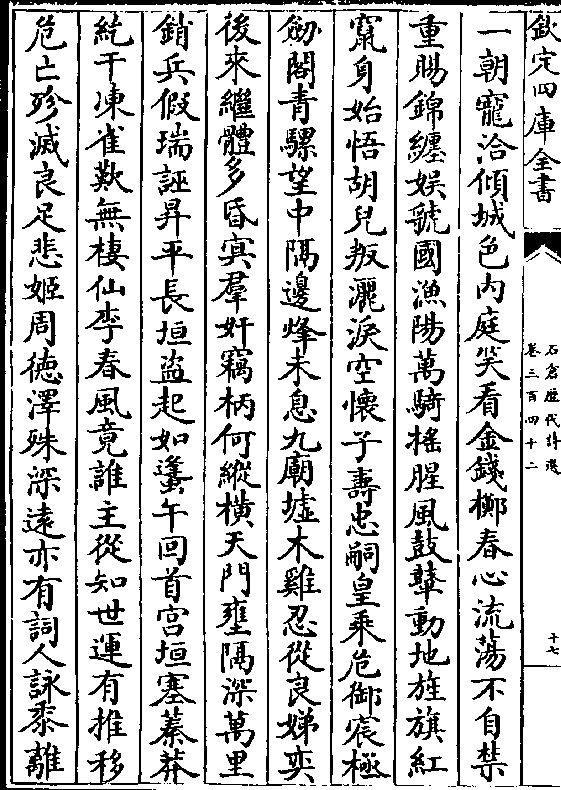 欽定四庫全書
石倉歷代詩選
卷三百四十二
十七
一朝寵洽傾城色内庭笑看金錢擲春心流蕩不自禁
重賜錦纏娱虢國漁陽萬騎摇腥風鼓鼙動地旌旗紅
竄身始悟胡兒叛灑淚空懷子壽忠嗣皇乘危御宸極
劒閣青騾望中隔邊烽未息九廟墟木雞忍從良娣奕
後來繼體多昏㝠羣奸竊柄何縱橫天門壅隔深萬里
銷兵假瑞誣昇平長垣盜起如蠭午回首宫垣塞蓁莽
紇干凍雀歎無棲仙李春風竟誰主從知世運有推移
危亡殄滅良足悲姬周徳澤殊深遠亦有詞人詠黍離